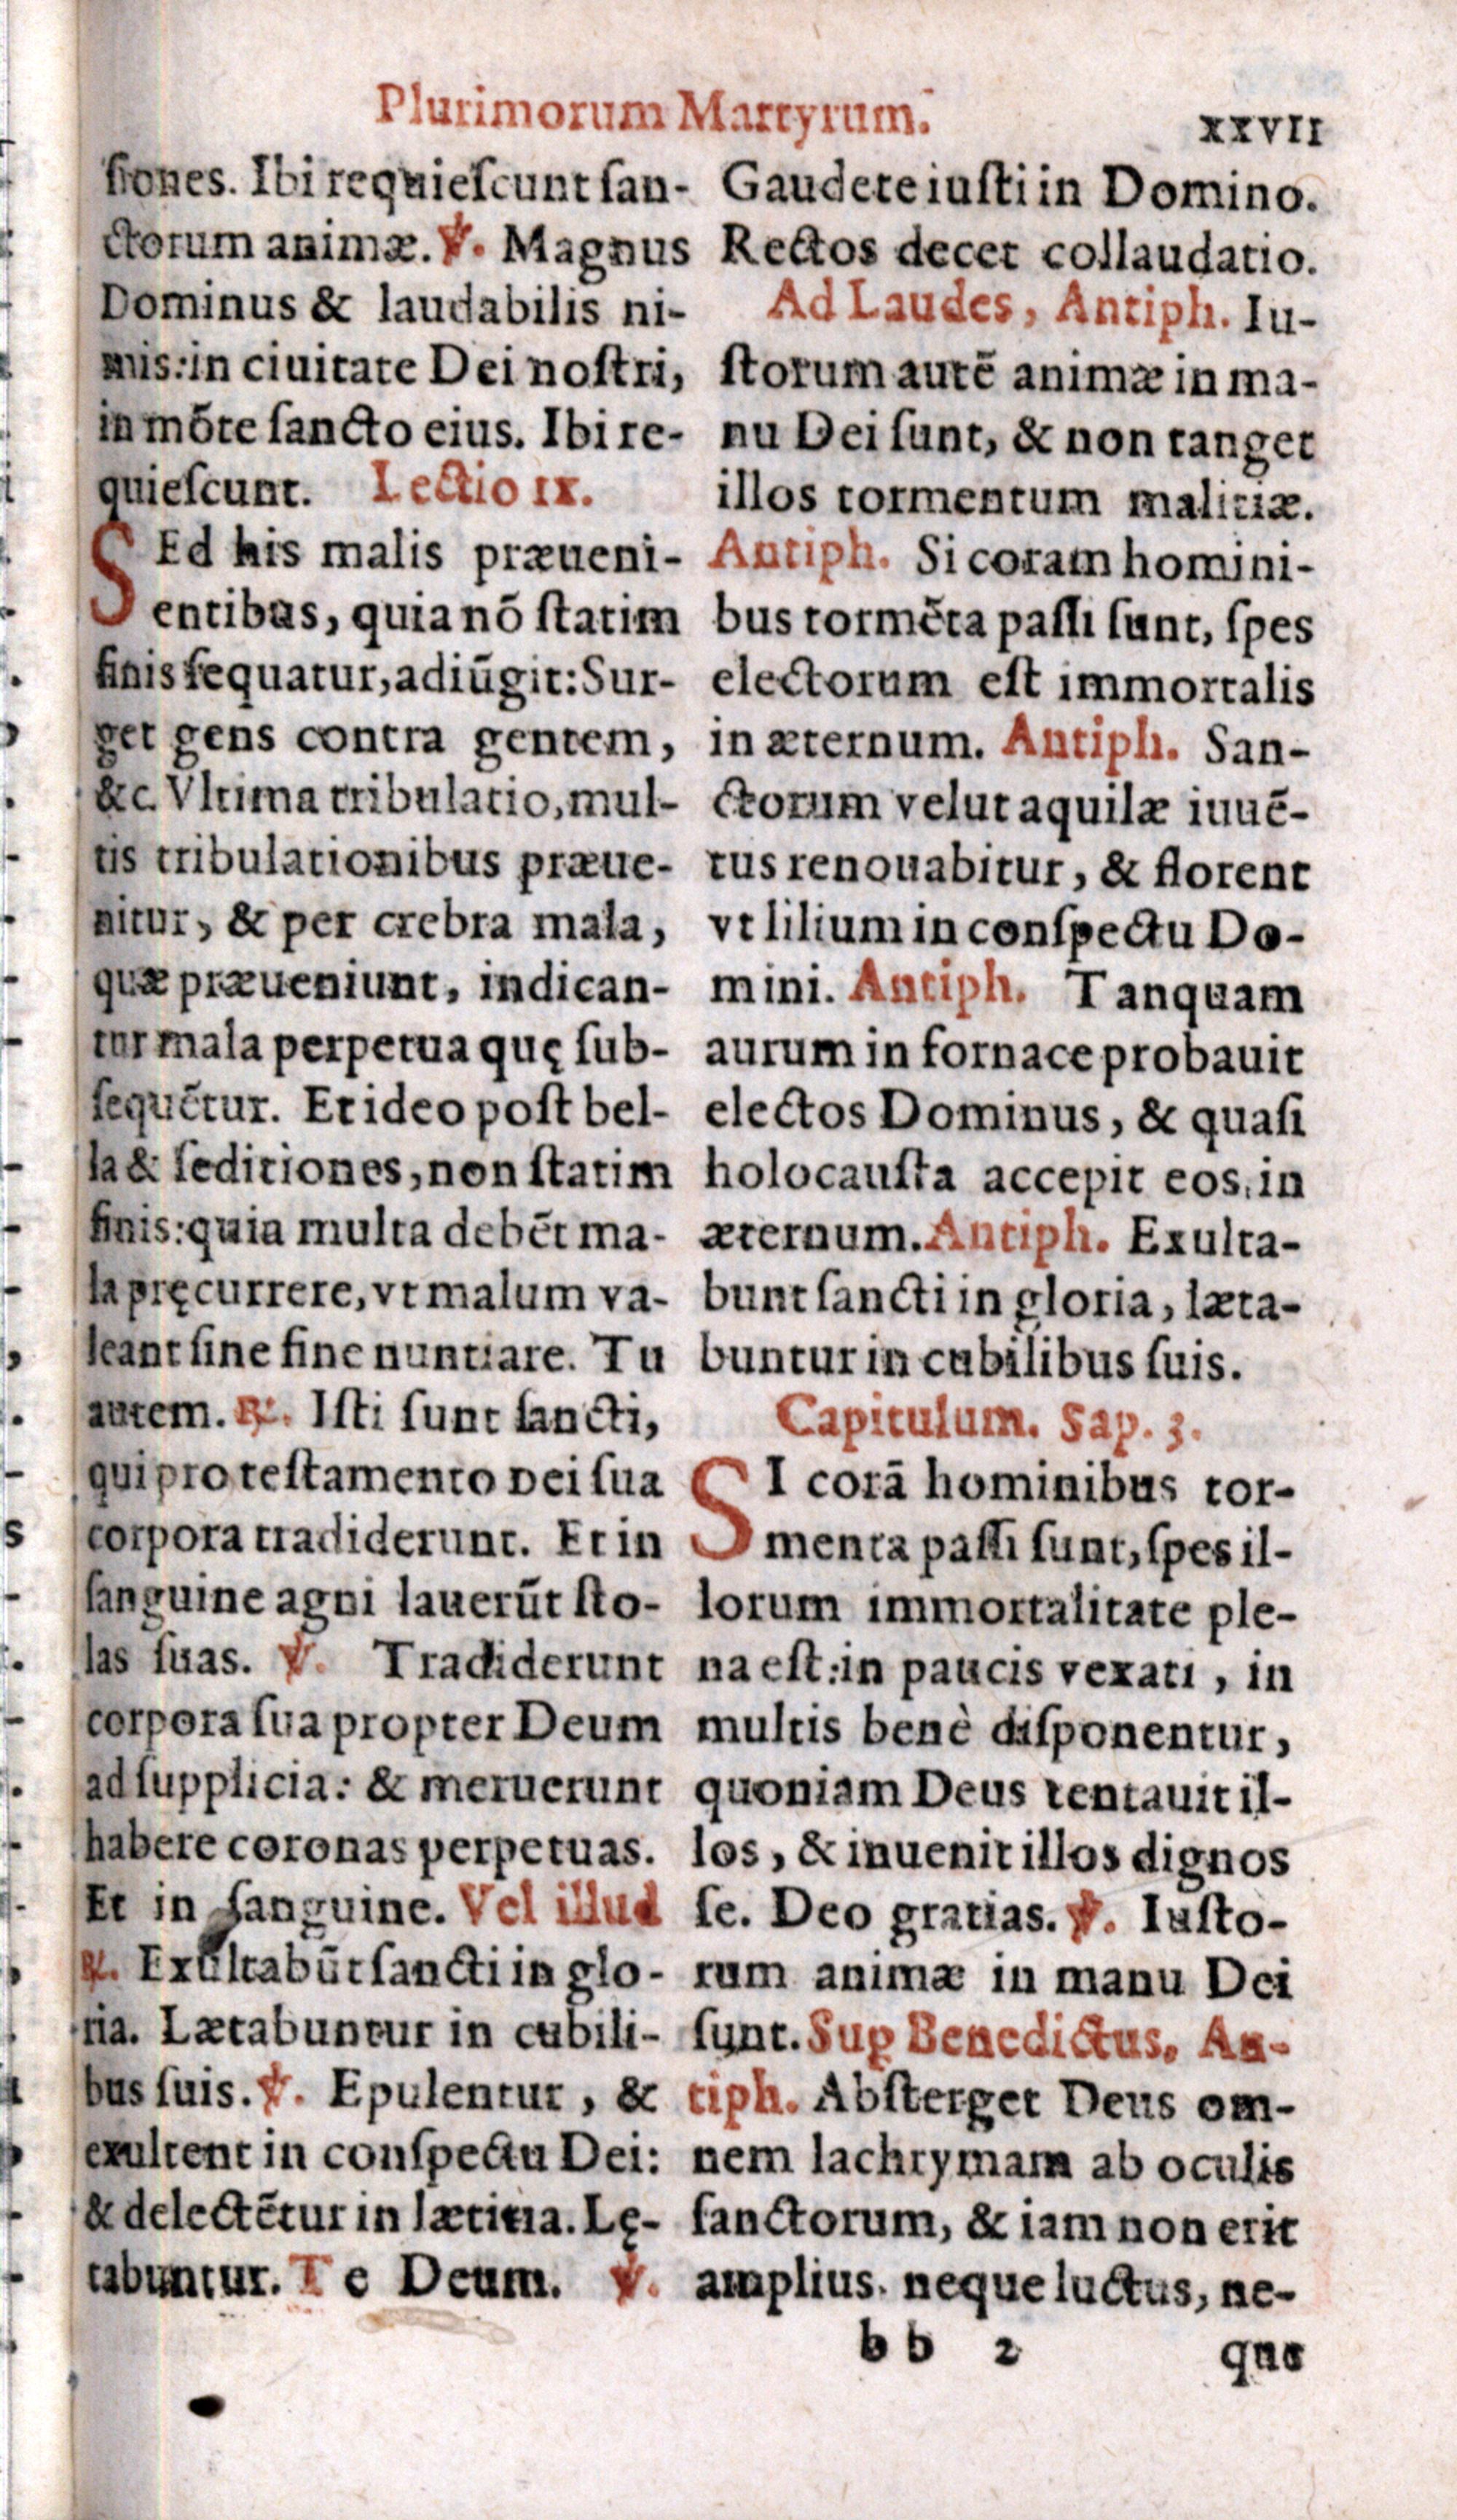 Plurimorum Martyrum.
xxvii
ſiones. Ibi requieſcunt ſan-
ctorum animæ. ℣. Magnus
Dominus & laudabilis ni-
mis: in ciuitate Dei noſtri,
in mōte ſancto eius. Ibi re-
quieſcunt. Lectio ix.
SEd his malis præueni-
entibus, quia nō ſtatim
finis ſequatur, adiūgit: Sur-
get gens contra gentem,
&c. Vltima tribulatio, mul-
tis tribulationibus præue-
nitur, & per crebra mala,
quæ præueniunt, indican-
tur mala perpetua quę ſub-
ſequētur. Et ideo poſt bel-
la & ſeditiones, non ſtatim
finis: quia multa debēt ma-
la pręcurrere, vt malum va-
leant ſine fine nuntiare. Tu
autem. ℟. Iſti ſunt ſancti,
qui pro teſtamento Dei ſua
corpora tradiderunt. Et in
ſanguine agni lauerūt ſto-
las ſuas. ℣. Tradiderunt
corpora ſua propter Deum
ad ſupplicia: & meruerunt
habere coronas perpetuas.
Et in ſanguine. Vel illud
℟. Exultabūt ſancti in glo-
ria. Lætabuntur in cubili-
bus ſuis. ℣. Epulentur, &
exultent in conſpectu Dei:
& delectētur in lætitia. Lę-
tabuntur. Te Deum. ℣.
Gaudete iuſti in Domino.
Rectos decet collaudatio.
Ad Laudes, Antiph. Iu-
ſtorum autē animæ in ma-
nu Dei ſunt, & non tanget
illos tormentum malitiæ.
Antiph. Si coram homini-
bus tormēta paſſi ſunt, ſpes
electorum eſt immortalis
in æternum. Antiph. San-
ctorum velut aquilæ iuuē-
tus renouabitur, & florent
vt lilium in conſpectu Do-
mini. Antiph. Tanquam
aurum in fornace probauit
electos Dominus, & quaſi
holocauſta accepit eos, in
æternum. Antiph. Exulta-
bunt ſancti in gloria, læta-
buntur in cubilibus ſuis.
Capitulum. Sap. 3.
SI corā hominibus tor-
menta paſſi ſunt, ſpes il-
lorum immortalitate ple-
na eſt: in paucis vexati, in
multis benè diſponentur,
quoniam Deus tentauit il-
los, & inuenit illos dignos
ſe. Deo gratias. ℣. Iuſto-
rum animæ in manu Dei
ſunt. Suꝑ Benedictus, An-
tiph. Abſterget Deus om-
nem lachrymam ab oculis
ſanctorum, & iam non erit
amplius, neque luctus, ne-
bb 2
que